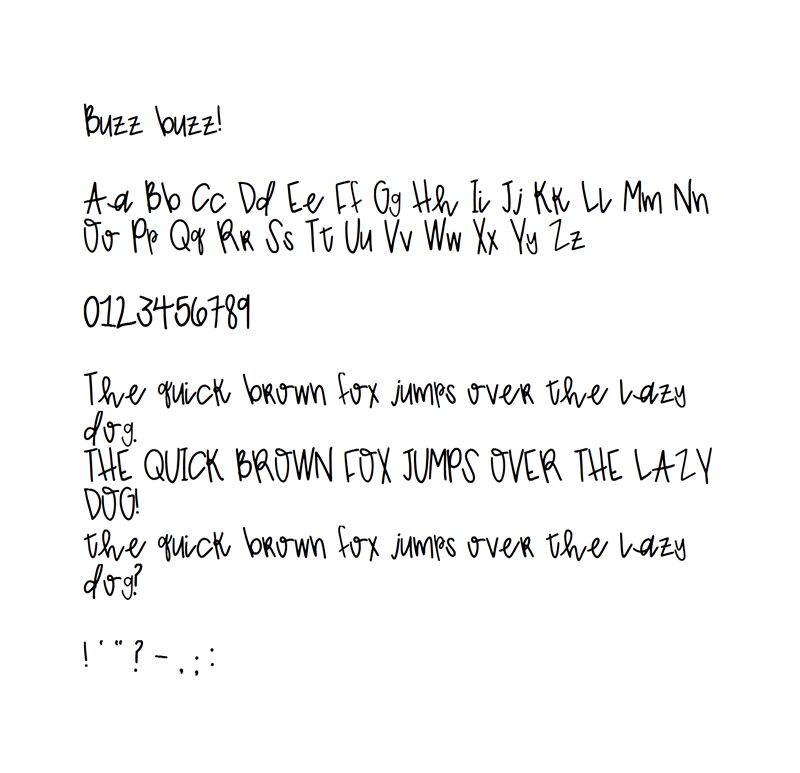 Buzz buzz!
Aa Bb Cc Dd Ee Ff Gg Hh Ii Jj Kk Ll Mm Nn
Oo Pp Qq Rr Ss Tt Uu Vv Ww Xx Yy Zz
0123456789
The quick brown fox jumps over the lazy
dog.
THE QUICK BROWN FOX JUMPS OVER THE LAZY
DOG!
the quick brown fox jumps over the lazy
dog?
! ' " ? - . ; :